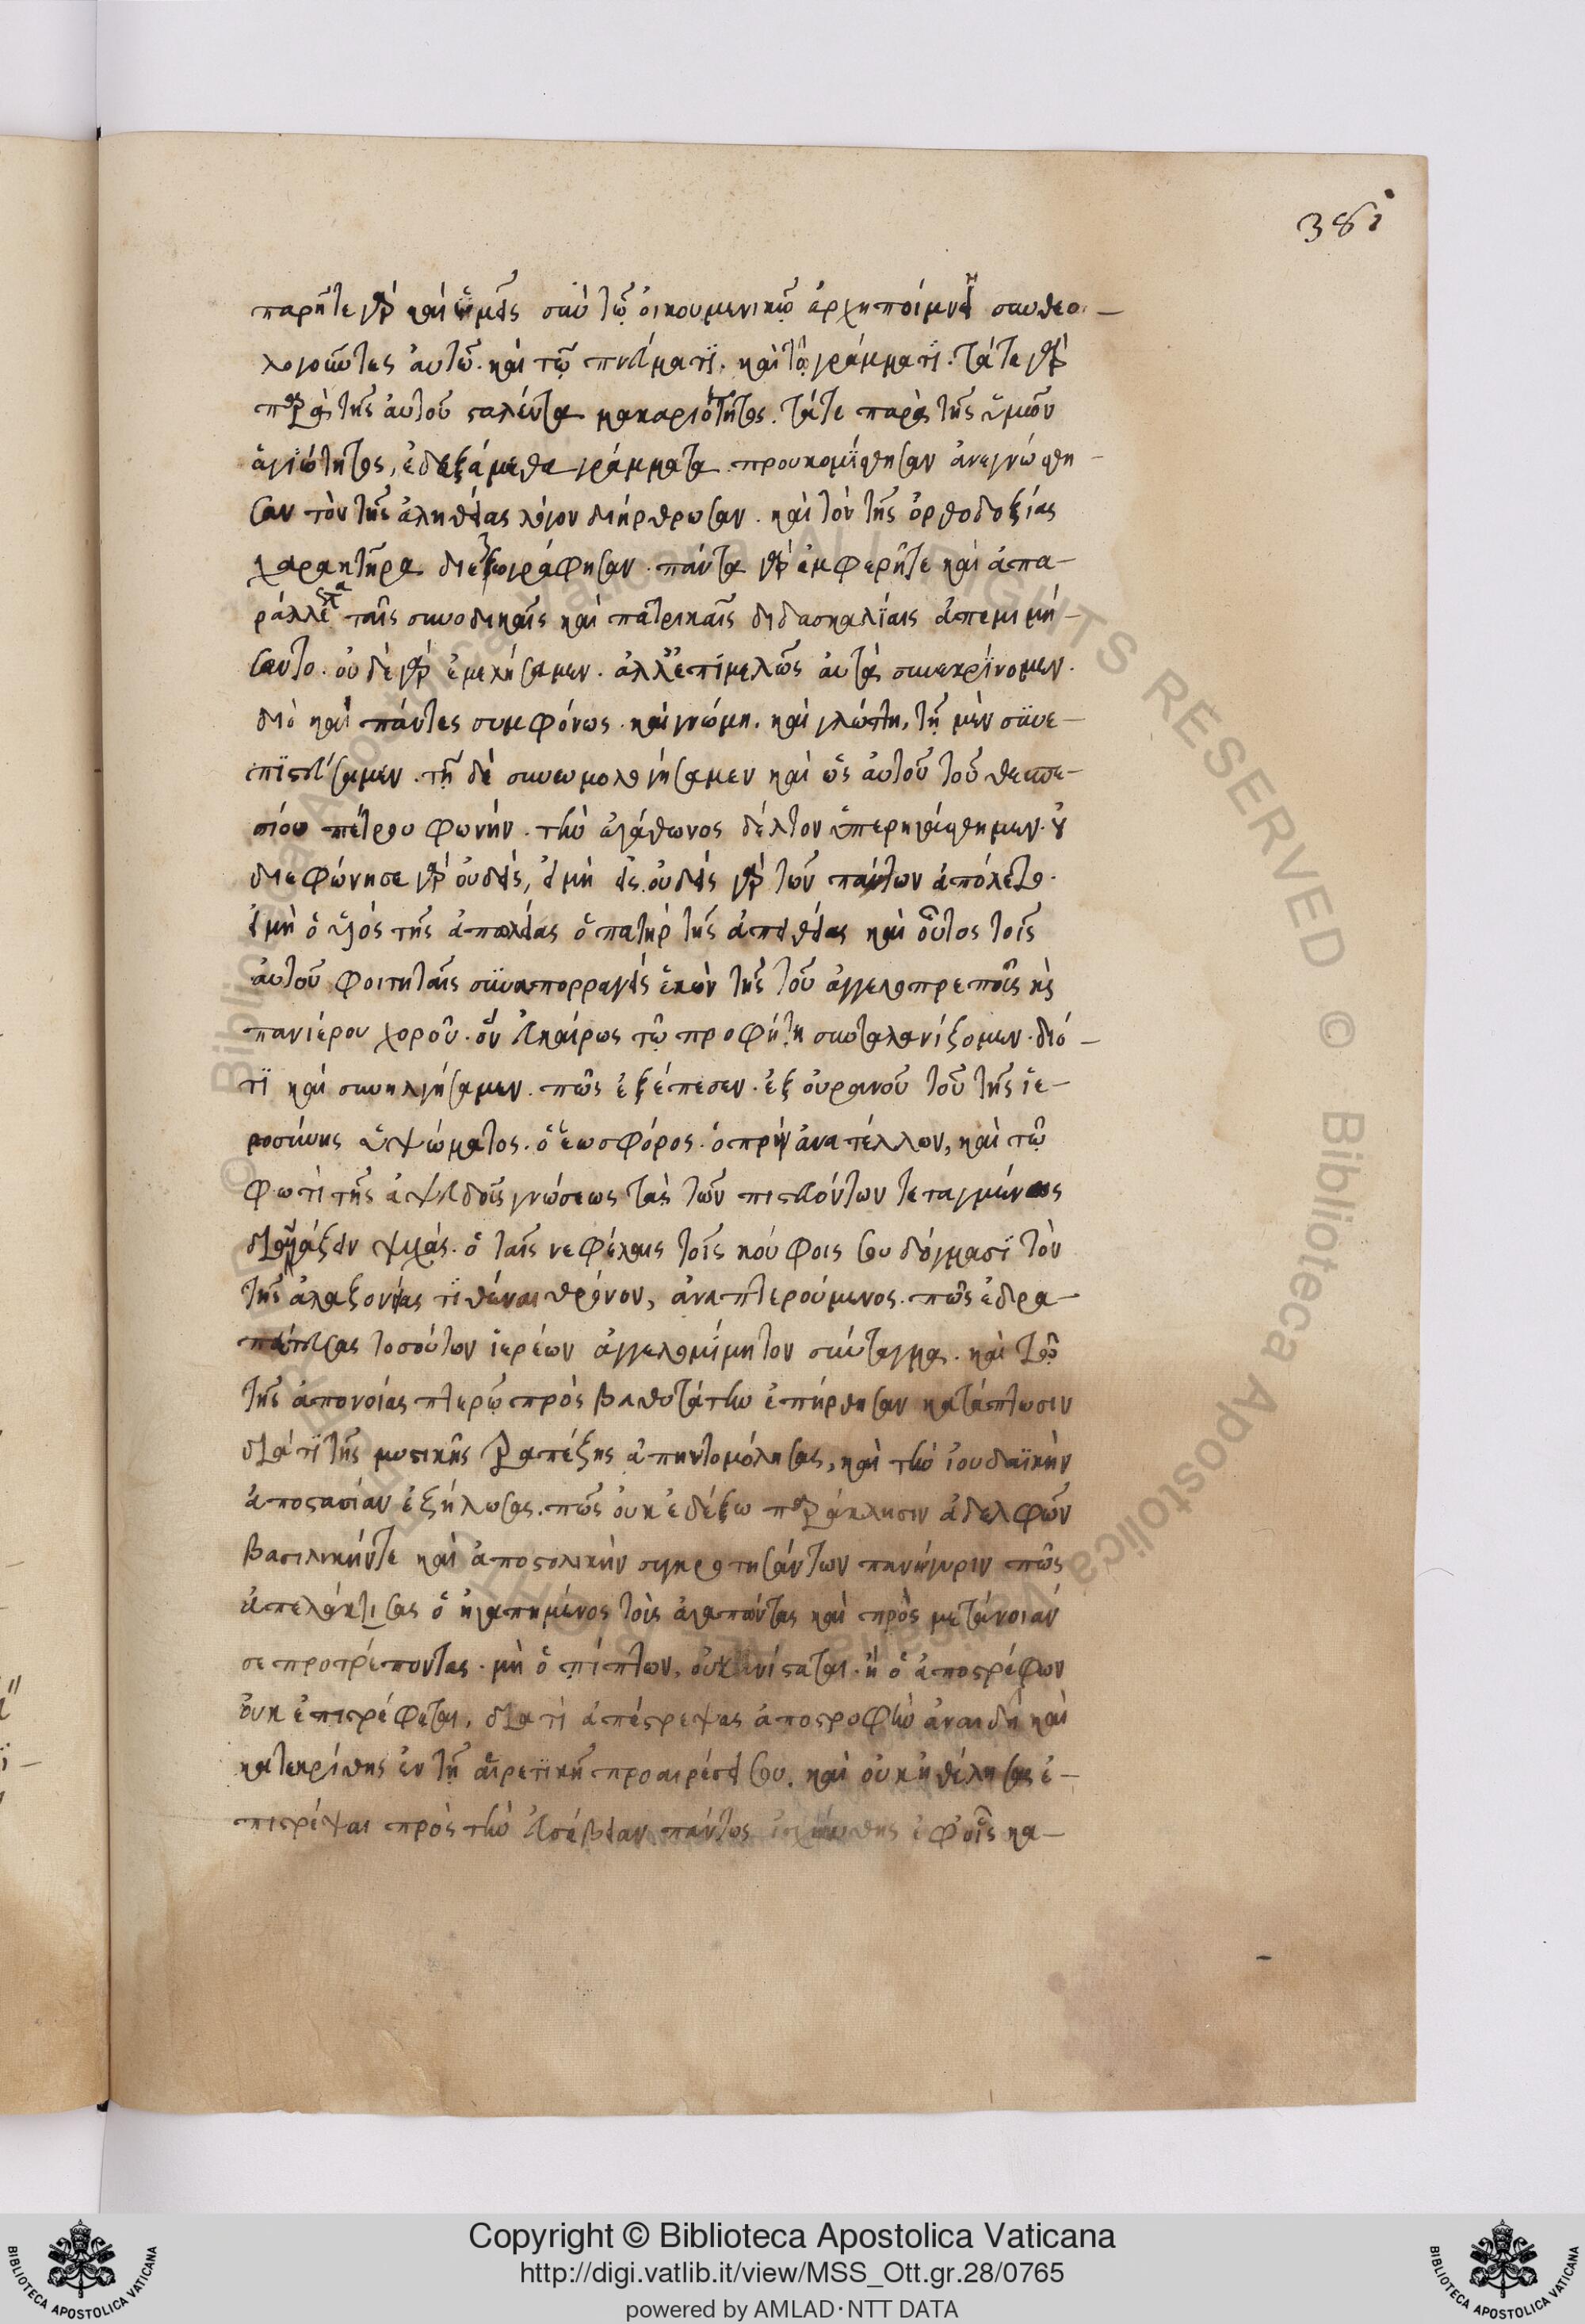 381
παρῆτε γὰρ καὶ ὑμεῖς σὺν τῷ οἰκουμενικῷ ἀρχιποίμενι συνθεο-
λογοῦντες αὐτῷ. καὶ τῷ πνεύματϊ. καὶ τῷ γράμματϊ. τάτε γὰρ
παρὰ τῆς αὐτοῦ σταλέντα μακαριότητος. τάτε παρὰ τῆς ὑμῶν
ἁγϊότητος, ἐδεξάμεθα γράμματα. προυκομΐσθησαν ἀνεγνώσθη-
σαν τὸν τῆς ἀληθείας λόγον διήρθρωσαν. καὶ τὸν τῆς ὀρθοδοξίας
χαρακτῆρα διεζωγράφησαν. πάντα γὰρ ἐμφερῆτε καὶ ἀπα-
ράλλε ταῖς συνοδικαῖς καὶ πατρικαῖς διδασκαλΐαις ἀπεμιμή-
σαντο. οὐδὲ γὰρ ἐμελήσαμεν. ἀλλ' ἐπιμελῶς αὐτὰ συνεκρΐνομεν.
διὸ καὶ πάντες συμφόνως. καὶ γνώμη. καὶ γλώττη, τῇ μὲν συνε-
πϊστεύσαμεν. τῇ δὲ συνωμολογήσαμεν καὶ ὡς αὐτοῦ τοῦ θεσπε-
σίου πέτρου φωνήν. τὴν ἀγάθωνος δέλτον ὑπερηγάσθημεν. οὐ
διεφώνησε γὰρ οὐδεὶς, εἰ μὴ εἷς. οὐδεὶς γὰρ τῶν πάντων ἀπόλετο.
εἰ μὴ ὁ υἱὸς τῆς ἀπωλείας ὁ πατὴρ τῆς ἀπειθείας καὶ οὗτος τοῖς
αὐτοῦ φοιτηταῖς συναπορραγεὶς ἑκὼν τῆς τοῦ ἀγγελοπρεποῦς καὶ
πανιέρου χοροῦ. ὃν εὐκαίρως τῷ προφήτη συνταλανίζομεν. διό-
τϊ καὶ συνηλγήσαμεν. πῶς ἐξέπεσεν. ἐξ οὐρανοῦ τοῦ τῆς ἱε-
ροσύνης ὑψώματος. ὁ ἑωσφόρος. ὁ πρὶν ἀνατέλλων, καὶ τῷ
φωτὶ τῆς ἀψευδοῦς γνώσεως τὰς τῶν πιστευόντων τεταγμένος
διαυγάζειν ψυχάς. ὁ ταῖς νεφέλαις τοῖς κούφοις σου δόγμασϊ τὸν
τῆς ἀλαζονείας τϊθέναι θρόνον, ἀναπτερούμενος. πῶς ἐδρα-
πέτευσας τοσούτων ἱερέων ἀγγελομίμητον σύνταγμα. καὶ τῷ
τῆς ἀπονοίας πτερῷ πρὸς βαθυτάτην ἐπήρθησαν κατάπτωσιν
διάτϊ τῆς μυστικῆς τραπέζης ἀπηυτομόλησας, καὶ τὴν ἰουδαϊκὴν
ἀποστασίαν ἐζήλωσας. πῶς οὐκ ἐδέξω παράκλησιν ἀδελφῶν
βασιλικήντε καὶ ἀποστολικὴν συγκροτησάντων πανήγυριν πῶς
ἀπελάκτισας ὁ ἠγαπημένος τοὺς ἀγαπῶντας καὶ πρὸς μετάνοιάν
σε προτρέποντας. μὴ ὁ πίπτων, οὐκ ἀνίσταται. ἢ ὁ ἀποστρέφων
οὐκ ἐπιστρέφεται, διατὶ ἀπέστρεψας ἀποστροφὴν ἀναιδῆ καὶ
κατεκρίθης ἐν τῇ αἱρετϊκῇ προαιρέσει σου. καὶ οὐκ ἠθέλησας ἐ-
πιστρέψαι πρὸς τὴν εὐσέβειαν πάντως ἐφοῖς κα-